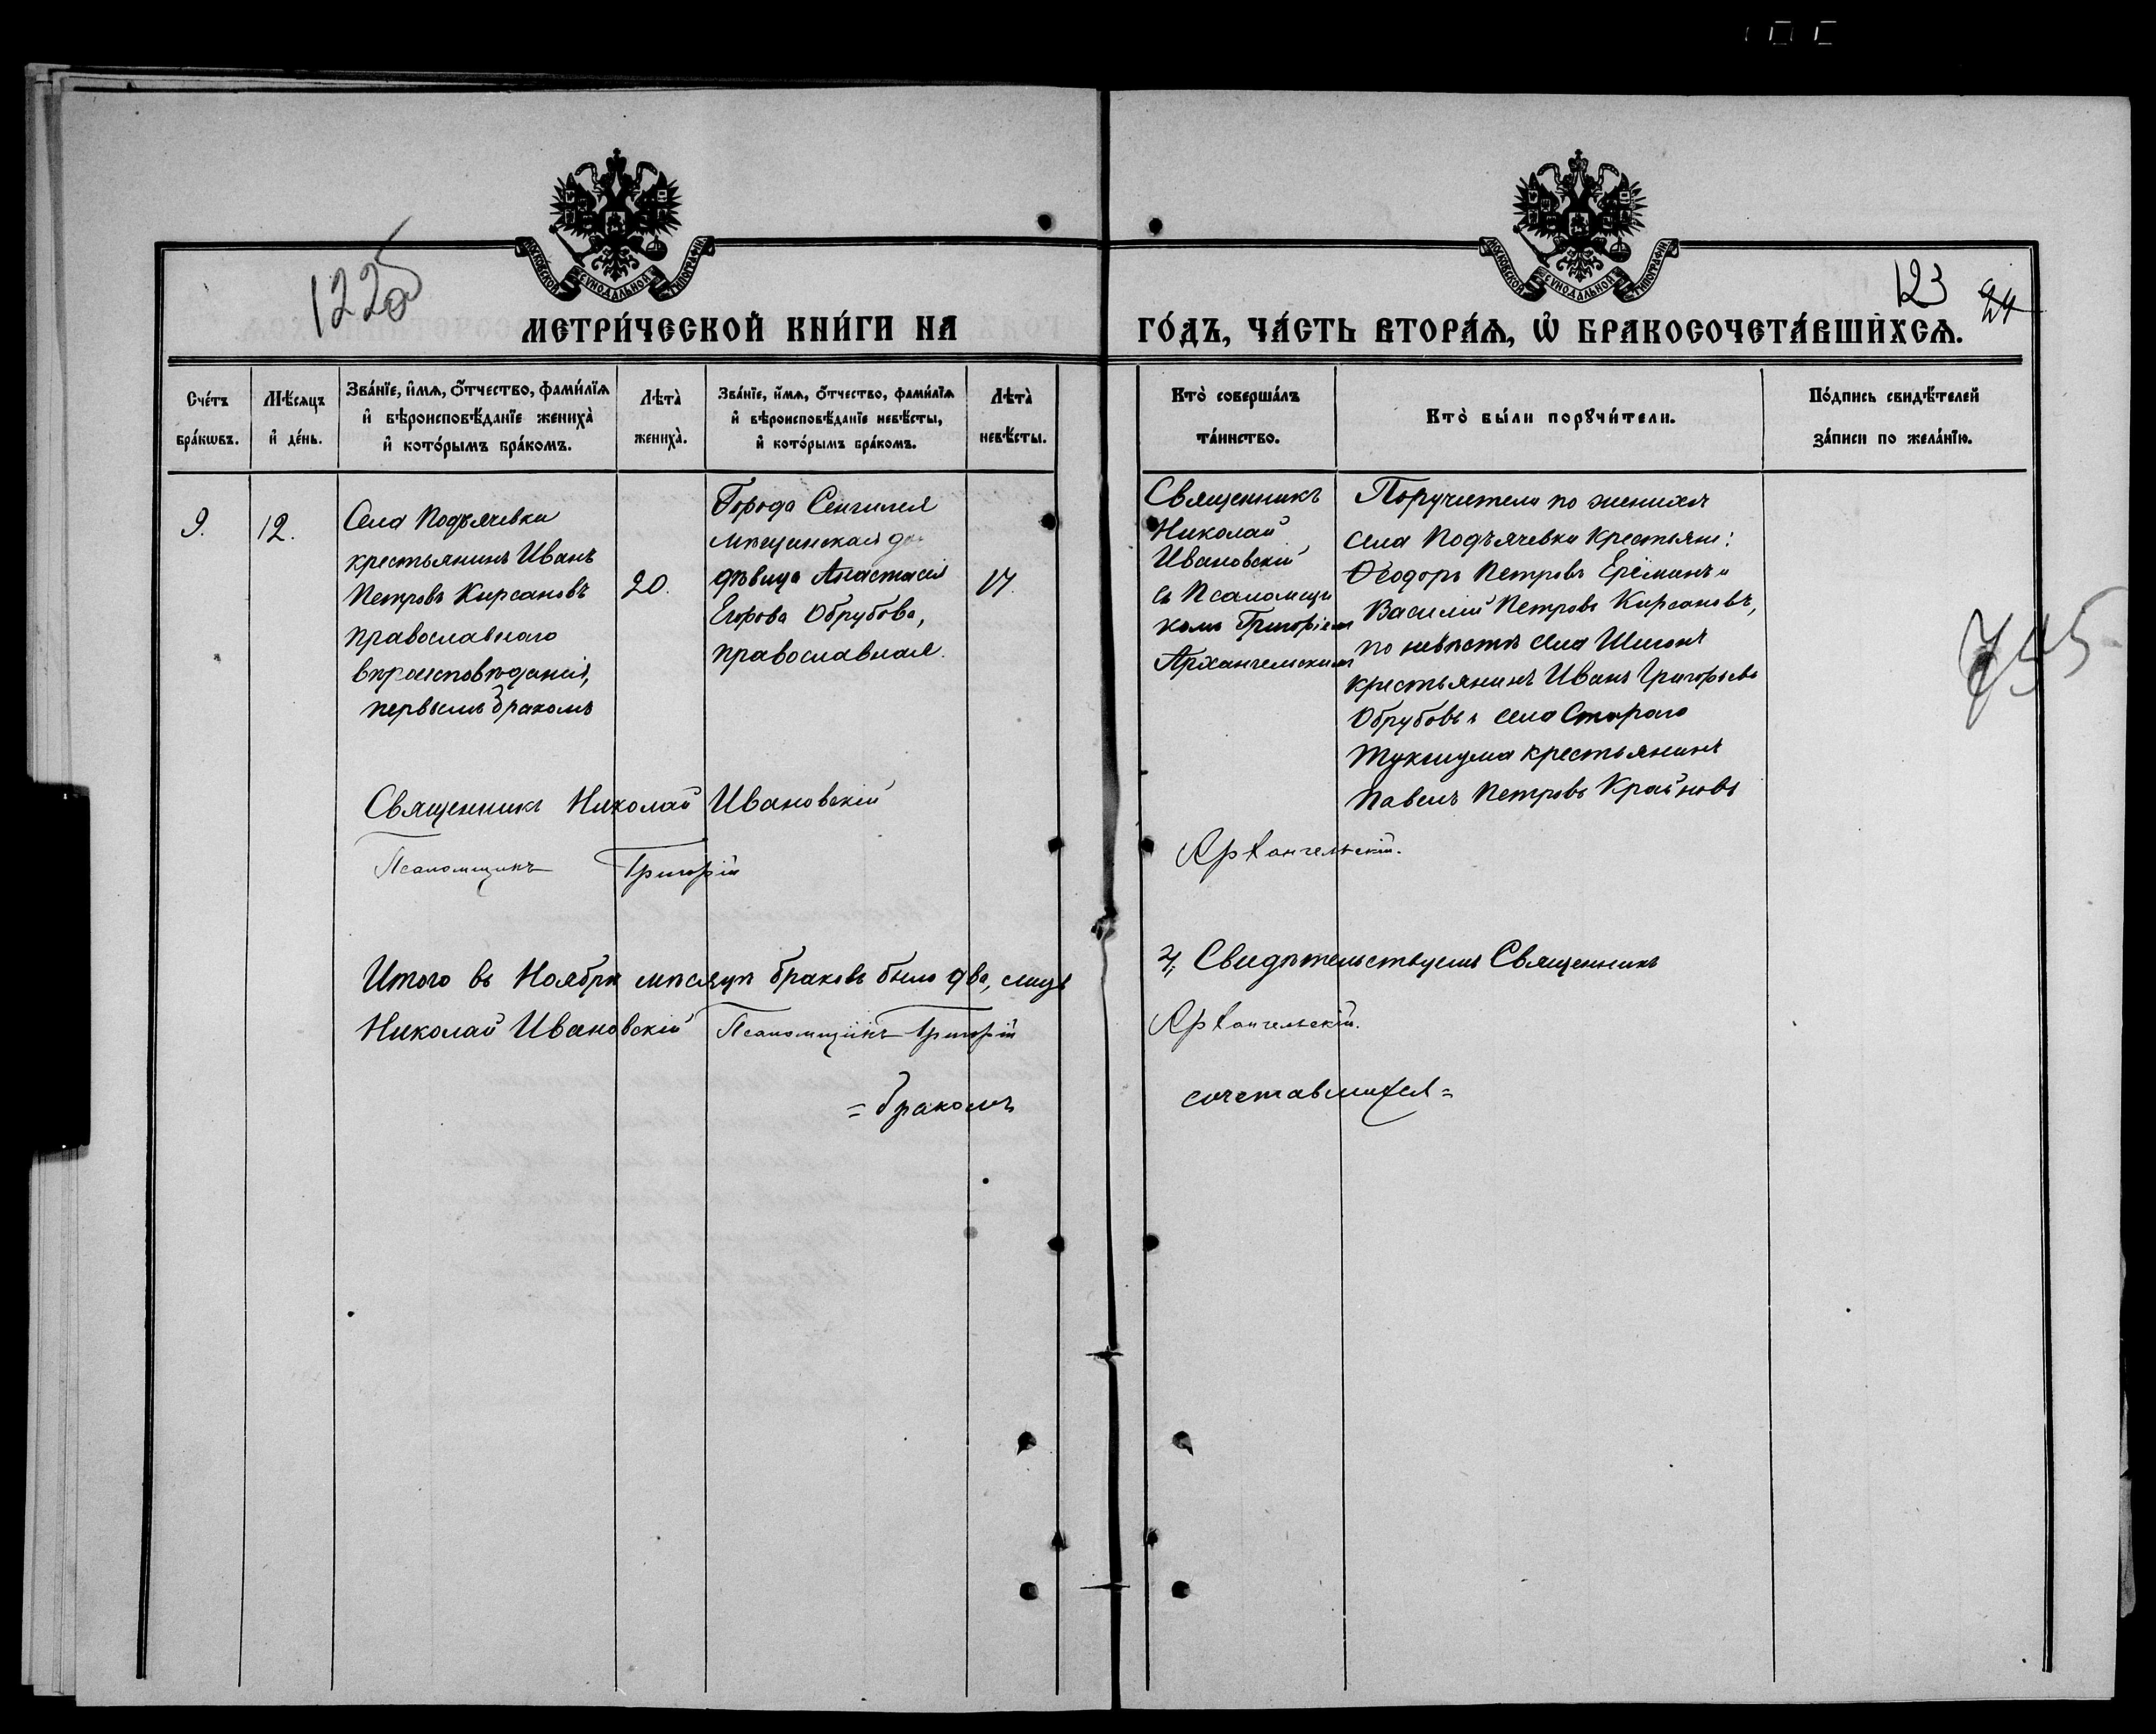 1225
123 24
МЕТРИ́ЧЕСКОЙ КНИ́ГИ НА ГО́ДЪ, ЧА́СТЬ ВТОРА́Я, Ѡ БРАКОСОЧЕТА́ВШИХСЯ.
МОСКОВСКОЙ СѴНОДАЛЬНОЙ ТИПОГРАФІИ
МОСКОВСКОЙ СѴНОДАЛЬНОЙ ТИПОГРАФІИ
Сче́тъ бра́кѡвъ.
Мѣ́сяцъ и де́нь.
Зва́нїе, и́мѧ, о́тчество, фами́лїѧ и вѣроисповѣ́данїе жениха̀ и кото́рымъ бра́комъ.
Лѣта̀ жениха̀.
Зва́нїе, и́мѧ, о́тчество, фами́лїѧ и вѣроисповѣ́данїе невѣ́сты, и кото́рымъ бра́комъ.
Лѣта̀ невѣ́сты.
Кто̀ соверша́лъ та́инство.
Кто̀ бы́ли порꙋчи́тели.
По́дпись свидѣ́телей за́писи по жела́нїю.
9.
12.
Села Подъячевки
крестьянинъ Иванъ
Петровъ Кирсановъ
православнаго
вѣроисповѣданія,
первымъ бракомъ
20.
Города Сенгилея
мѣщанская
дѣвица Анастасія
Егорова Обрубова,
православная.
17.
Священникъ
Николай
Ивановскій
съ Псаломщи
комъ Григоріемъ
Архангельскимъ
Поручители по женихѣ
села Подъячевки крестьяне:
Ѳеодоръ Петровъ Ереминъ и
Василій Петровъ Кирсановъ,
по невѣстѣ села Шигонъ
крестьянинъ Иванъ Григорьевъ
Обрубовъ и села Стараго
Тукшума крестьянинъ
Павелъ Петровъ Крайновъ
755
Священникъ Николай Ивановскій
Псаломщикъ Григорій Архангельскій.
Итого въ Ноябрѣ мѣсяцѣ браковъ было два, лицъ 4, Свидѣтельствуемъ Священникъ
Николай Ивановскій Псаломщикъ Григорій Архангельскій.
= бракомъ сочетавшихся =